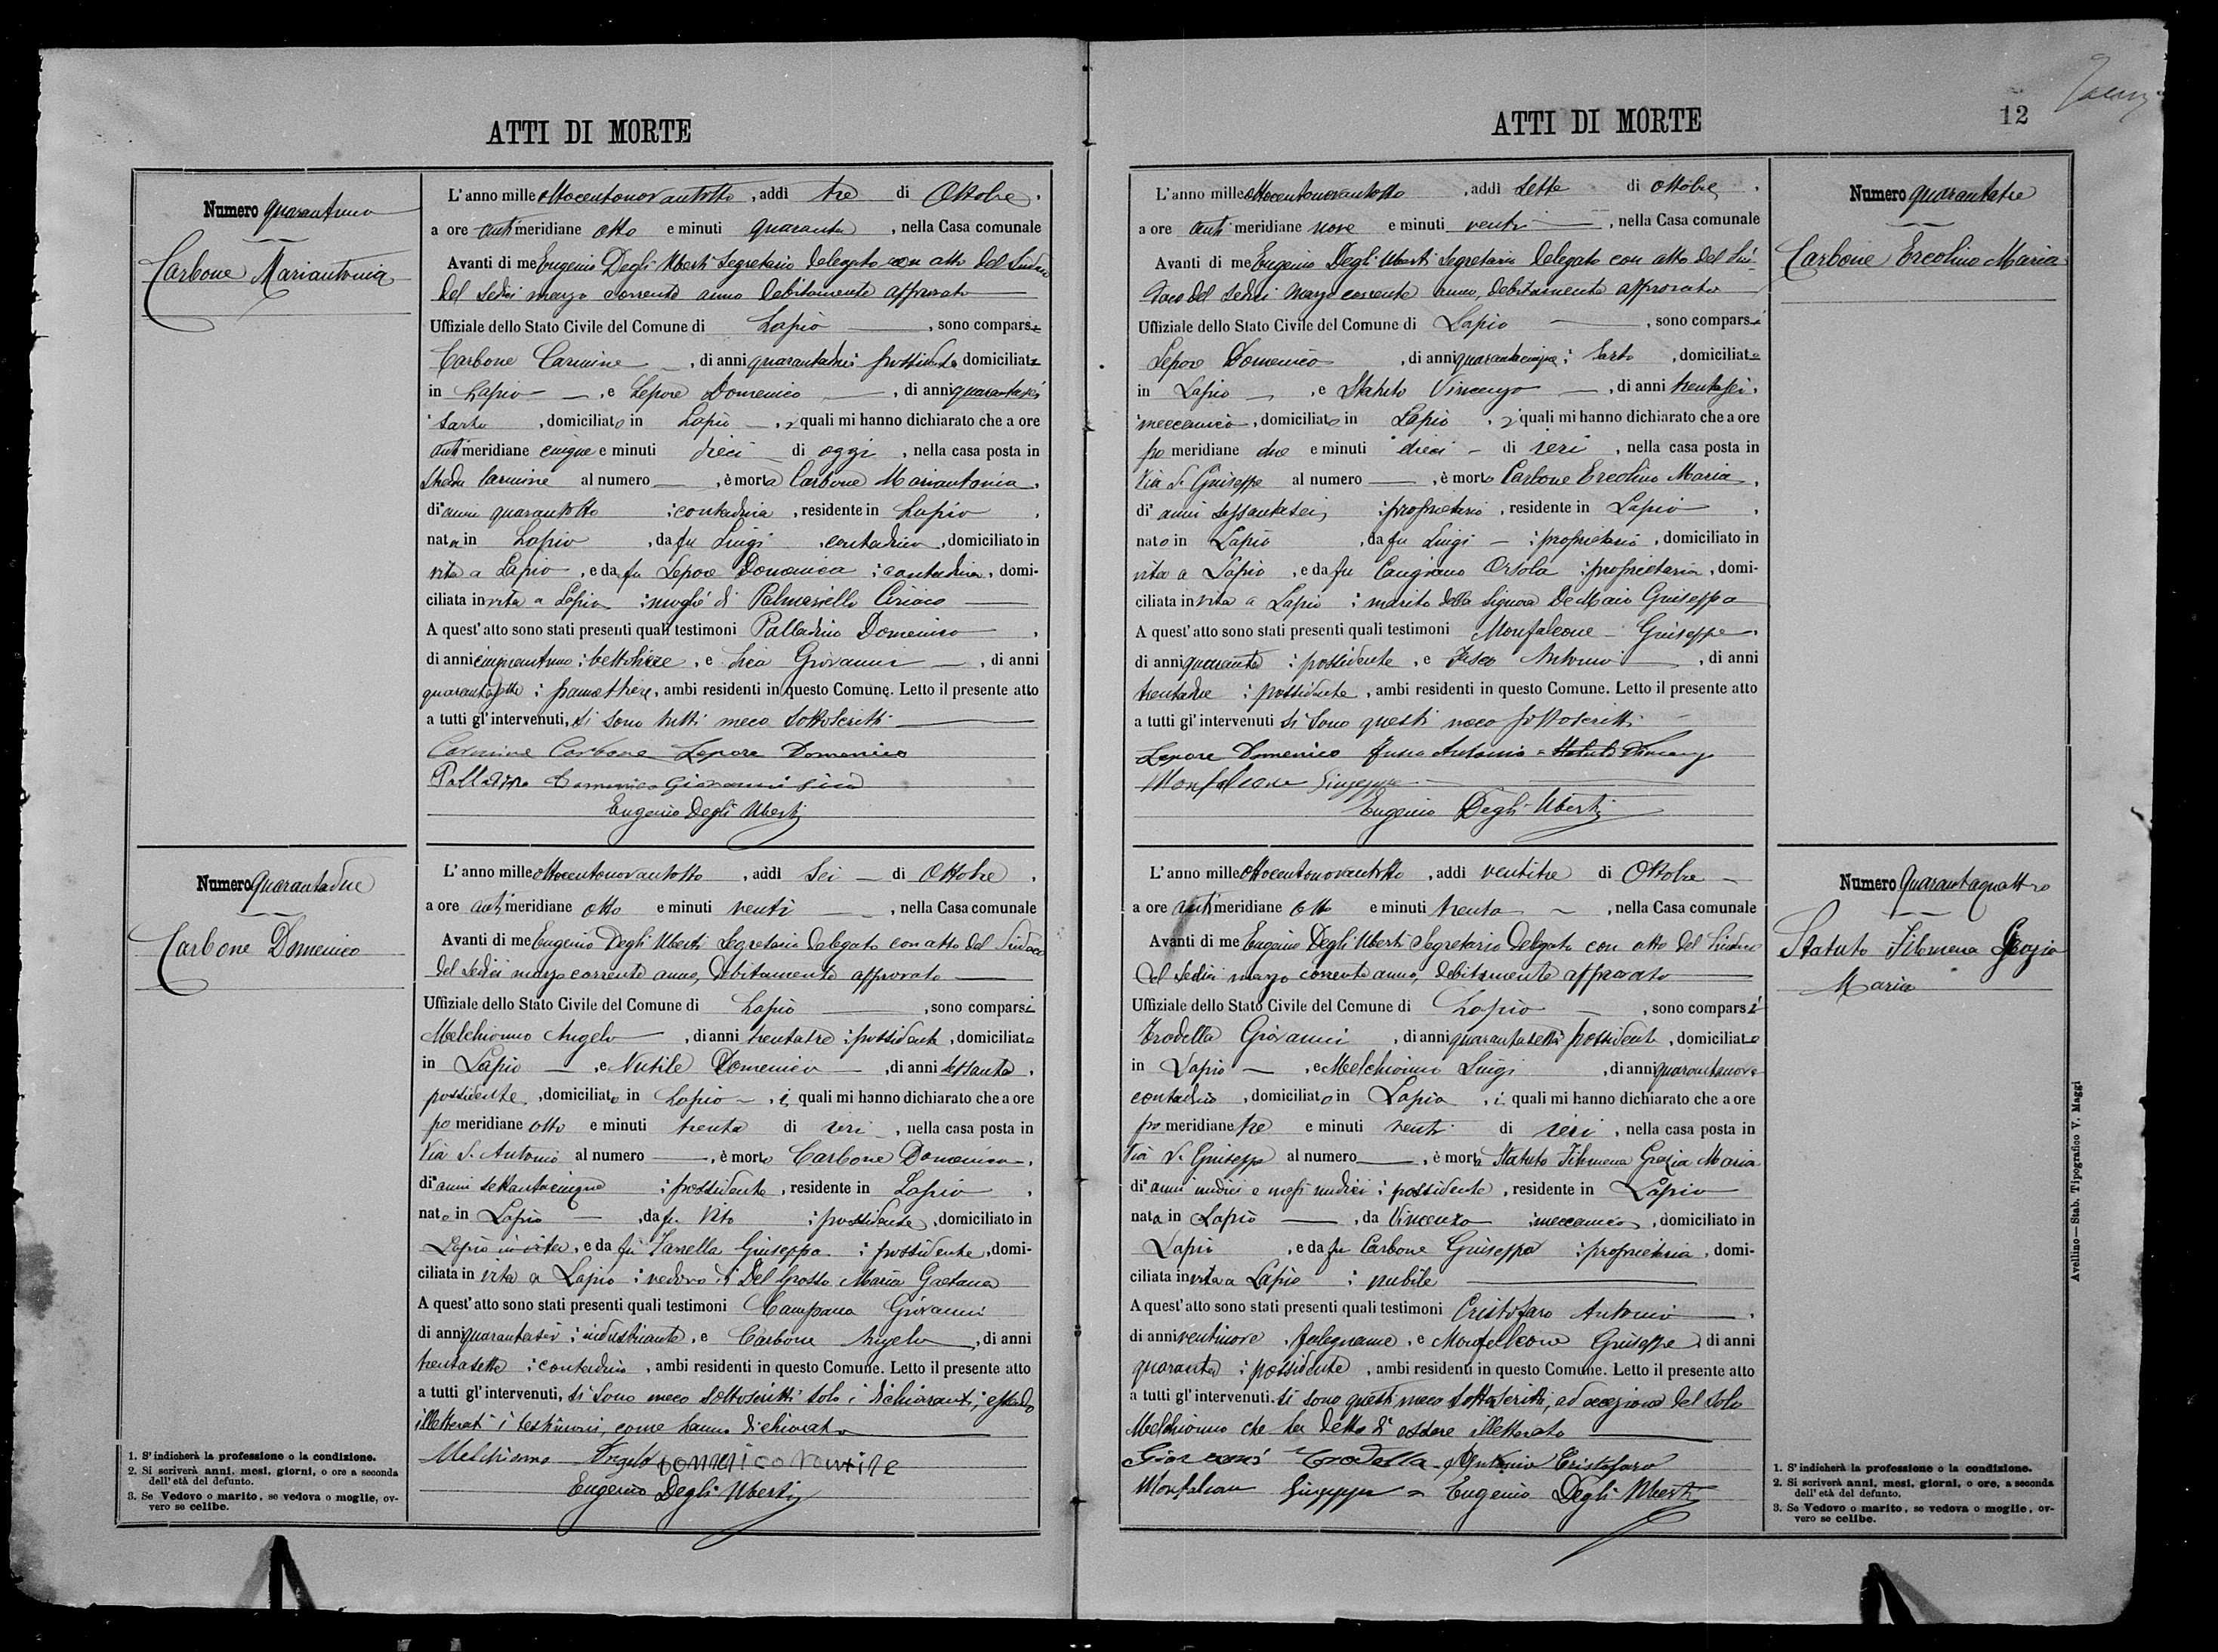 ATTI DI MORTE
Numero quarantuno
Carbone Mariantonia
L'anno mille ottocentonovantotto, addì tre di Ottobre,
a ore antimeridiane otto e minuti quaranta, nella Casa comunale
Avanti di me Eugenio Degli Uberti Segretario delegato con atto del Sindaco
del sedici marzo corrente anno debitamente approvato
Uffiziale dello Stato Civile del Comune di Lapio, sono comparsi
Carbone Carmine, di anni possidente domiciliato
in Lapio, e Lepore Domenico, di anni
sarto, domiciliato in Lapio, i quali mi hanno dichiarato che a ore
antimeridiane cinque e minuti dieci di oggi, nella casa posta in
Strada Carmine al numero, è morta Carbone Mariantonia,
di anni quarantotto contadina, residente in Lapio,
nata in Lapio, da fu Luigi, contadino, domiciliato in
vita a Lapio, e da fu Lepore Domenica contadina, domi-
ciliata in vita a Lapio moglie di Palmariello Ciriaco
A quest'atto sono stati presenti quali testimoni Palladino Domenico,
di anni cinquantuno bettoliere, e Sica Giovanni, di anni
quarantasette, ambi residenti in questo Comune. Letto il presente atto
a tutti gl'intervenuti, si sono tutti meco sottoscritti
Carmine Carbone Lepore Domenico
Palladino Domenico Giovanni Sica
Eugenio Degli Uberti
Numero quarantadue
Carbone Domenico
L'anno mille ottocentonovantotto, addì sei di Ottobre,
a ore antimeridiane otto e minuti venti, nella Casa comunale
Avanti di me Eugenio Degli Uberti Segretario delegato con atto del Sindaco
del sedici marzo corrente anno, debitamente approvato
Uffiziale dello Stato Civile del Comune di Lapio, sono comparsi
Melchionno Angelo, di anni trentatre possidente, domiciliato
in Lapio, e Nutile Domenico, di anni sessanta,
possidente, domiciliato in Lapio, i quali mi hanno dichiarato che a ore
pomeridiane otto e minuti trenta di ieri, nella casa posta in
Via S. Antonio al numero, è morto Carbone Domenico,
di anni settantacinque possidente, residente in Lapio,
nato in Lapio, da fu Vito possidente, domiciliato in
Lapio in vita, e da fu Giuseppa possidente, domi-
ciliata in vita a Lapio vedovo di Del Grosso Maria Gaetana
A quest'atto sono stati presenti quali testimoni Campana Giovanni
di anni quarantasei industriante, e Carbone Angelo, di anni
trentasette contadino, ambi residenti in questo Comune. Letto il presente atto
a tutti gl'intervenuti, si sono meco sottoscritti solo i dichiaranti, essendo
illetterati i testimoni, come hanno dichiarato
Melchionno Angelo Domenico Nutile
Eugenio Degli Uberti
1. S'indicherà la professione o la condizione.
2. Si scriverà anni, mesi, giorni, o ore a seconda
dell'età del defunto.
3. Se Vedovo o marito, se vedova o moglie, ov-
vero se celibe.
ATTI DI MORTE
12
Numero quarantatre
Carbone Ercolino Maria
L'anno mille ottocentonovantotto, addì sette di ottobre,
a ore antimeridiane nove e minuti venti, nella Casa comunale
Avanti di me Eugenio Degli Uberti Segretario delegato con atto del Sin-
daco del sedici marzo corrente anno, debitamente approvato
Uffiziale dello Stato Civile del Comune di Lapio, sono comparsi
Lepore Domenico, di anni quarantacinque sarto, domiciliato
in Lapio, e Statuto Vincenzo, di anni trentasei,
meccanico, domiciliato in Lapio, i quali mi hanno dichiarato che a ore
pomeridiane due e minuti dieci di ieri, nella casa posta in
Via S. Giuseppe al numero, è morto Carbone Ercolino Maria,
di anni sessantasei, proprietario, residente in Lapio,
nato in Lapio, da fu Luigi proprietario, domiciliato in
vita a Lapio, e da fu Cangiano Orsola proprietaria, domi-
ciliata in vita a Lapio marito della Signora De Maio Giuseppa
A quest'atto sono stati presenti quali testimoni Monfalcone Giuseppe,
di anni quaranta possidente, e Fusco Antonio, di anni
trentadue possidente, ambi residenti in questo Comune. Letto il presente atto
a tutti gl'intervenuti si sono questi meco sottoscritti
Lepore Domenico Fusco Antonio = Statuto Vincenzo
Monfalcone Giuseppe
Eugenio Degli Uberti
Numero quarantaquattro
Statuto Filomena Grazia
Maria
L'anno mille ottocentonovantotto, addì ventitre di Ottobre
a ore antimeridiane otto e minuti trenta, nella Casa comunale
Avanti di me Eugenio Degli Uberti Segretario delegato con atto del Sindaco
del sedici marzo corrente anno, debitamente approvato
Uffiziale dello Stato Civile del Comune di Lapio, sono comparsi
Trodella Giovanni, di anni quarantasette possidente, domiciliato
in Lapio, e Melchionno Luigi, di anni quarantanove
contadino, domiciliato in Lapio, i quali mi hanno dichiarato che a ore
pomeridiane tre e minuti venti di ieri, nella casa posta in
Via S. Giuseppe al numero, è morta Statuto Filomena Grazia Maria
di anni undici e mesi undici possidente, residente in Lapio
nata in Lapio, da Vincenzo meccanico, domiciliato in
Lapio, e da fu Carbone Giuseppa proprietaria, domi-
ciliata in vita a Lapio nubile
A quest'atto sono stati presenti quali testimoni Cristofaro Antonio,
di anni ventinove, falegname, e Monfalcone Giuseppe, di anni
quaranta possidente, ambi residenti in questo Comune. Letto il presente atto
a tutti gl'intervenuti si sono questi meco sottoscritti, ad eccezione del solo
Melchionno che ha detto di essere illetterato
Giovanni Trodella Antonio Cristofaro
Monfalcone Giuseppe = Eugenio Degli Uberti
1. S'indicherà la professione o la condizione.
2. Si scriverà anni, mesi, giorni, o ore, a seconda
dell'età del defunto.
3. Se Vedovo o marito, se vedova o moglie, ov-
vero se celibe.
Avellino—Stab. Tipografico V. Maggi